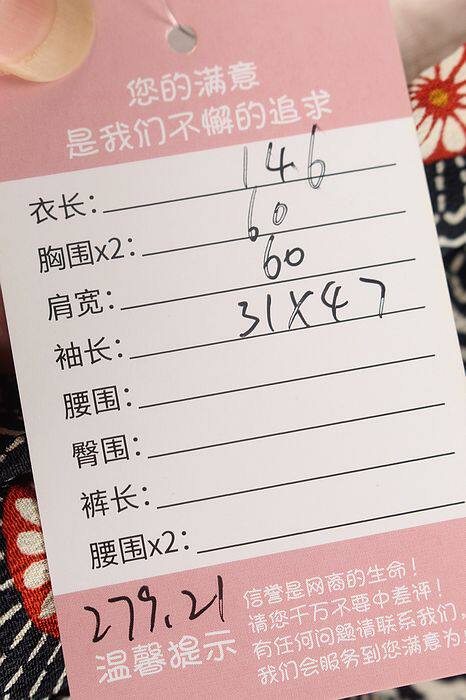 您的满意
是我们不懈的追求
衣长: 146
胸围x2: 60
肩宽: 60
袖长: 31X47
腰围:
臀围:
裤长:
腰围x2:
279.21
温馨提示
信誉是网商的生命!
请您千万不要中差评!
有任何问题请联系我们,
我们会服务到您满意为